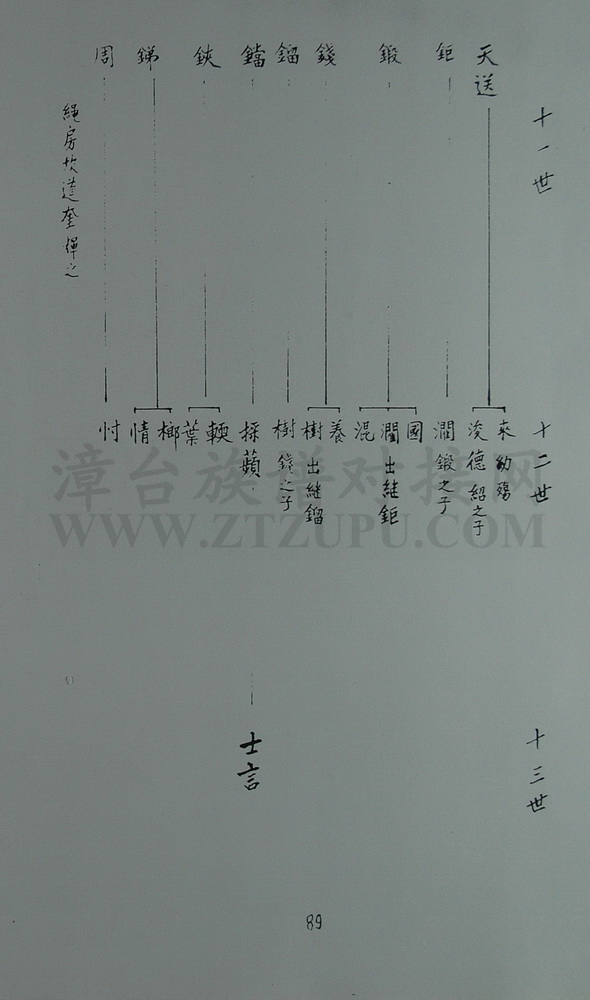 十一世
天送
鉅
鍛
錢
鎦
鐺
鋏
銻
周
繩房坎達奎煇之
十二世
來幼殤
浚德紹之子
澗鍛之子
國
澗出継鉅
混
養
樹出継鎦
樹錢之子
採蘋
輭
葉
榔
情
忖
十三世
士言
89
漳台族谱对接网
WWW.ZTZUPU.COM